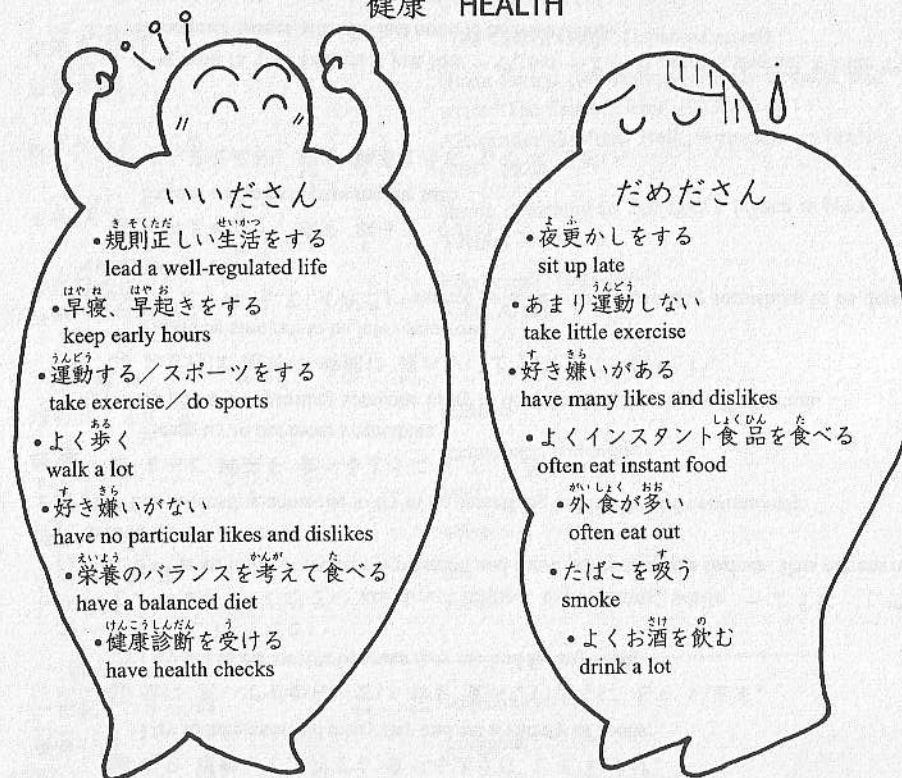 健康 HEALTH
いいださん
・規則正しい生活をする
lead a well-regulated life
・早寝、早起きをする
keep early hours
・運動する／スポーツをする
take exercise／do sports
・よく歩く
walk a lot
・好き嫌いがない
have no particular likes and dislikes
・栄養のバランスを考えて食べる
have a balanced diet
・健康診断を受ける
have health checks
だめださん
・夜更かしをする
sit up late
・あまり運動しない
take little exercise
・好き嫌いがある
have many likes and dislikes
・よくインスタント食品を食べる
often eat instant food
・外食が多い
often eat out
・たばこを吸う
smoke
・よくお酒を飲む
drink a lot